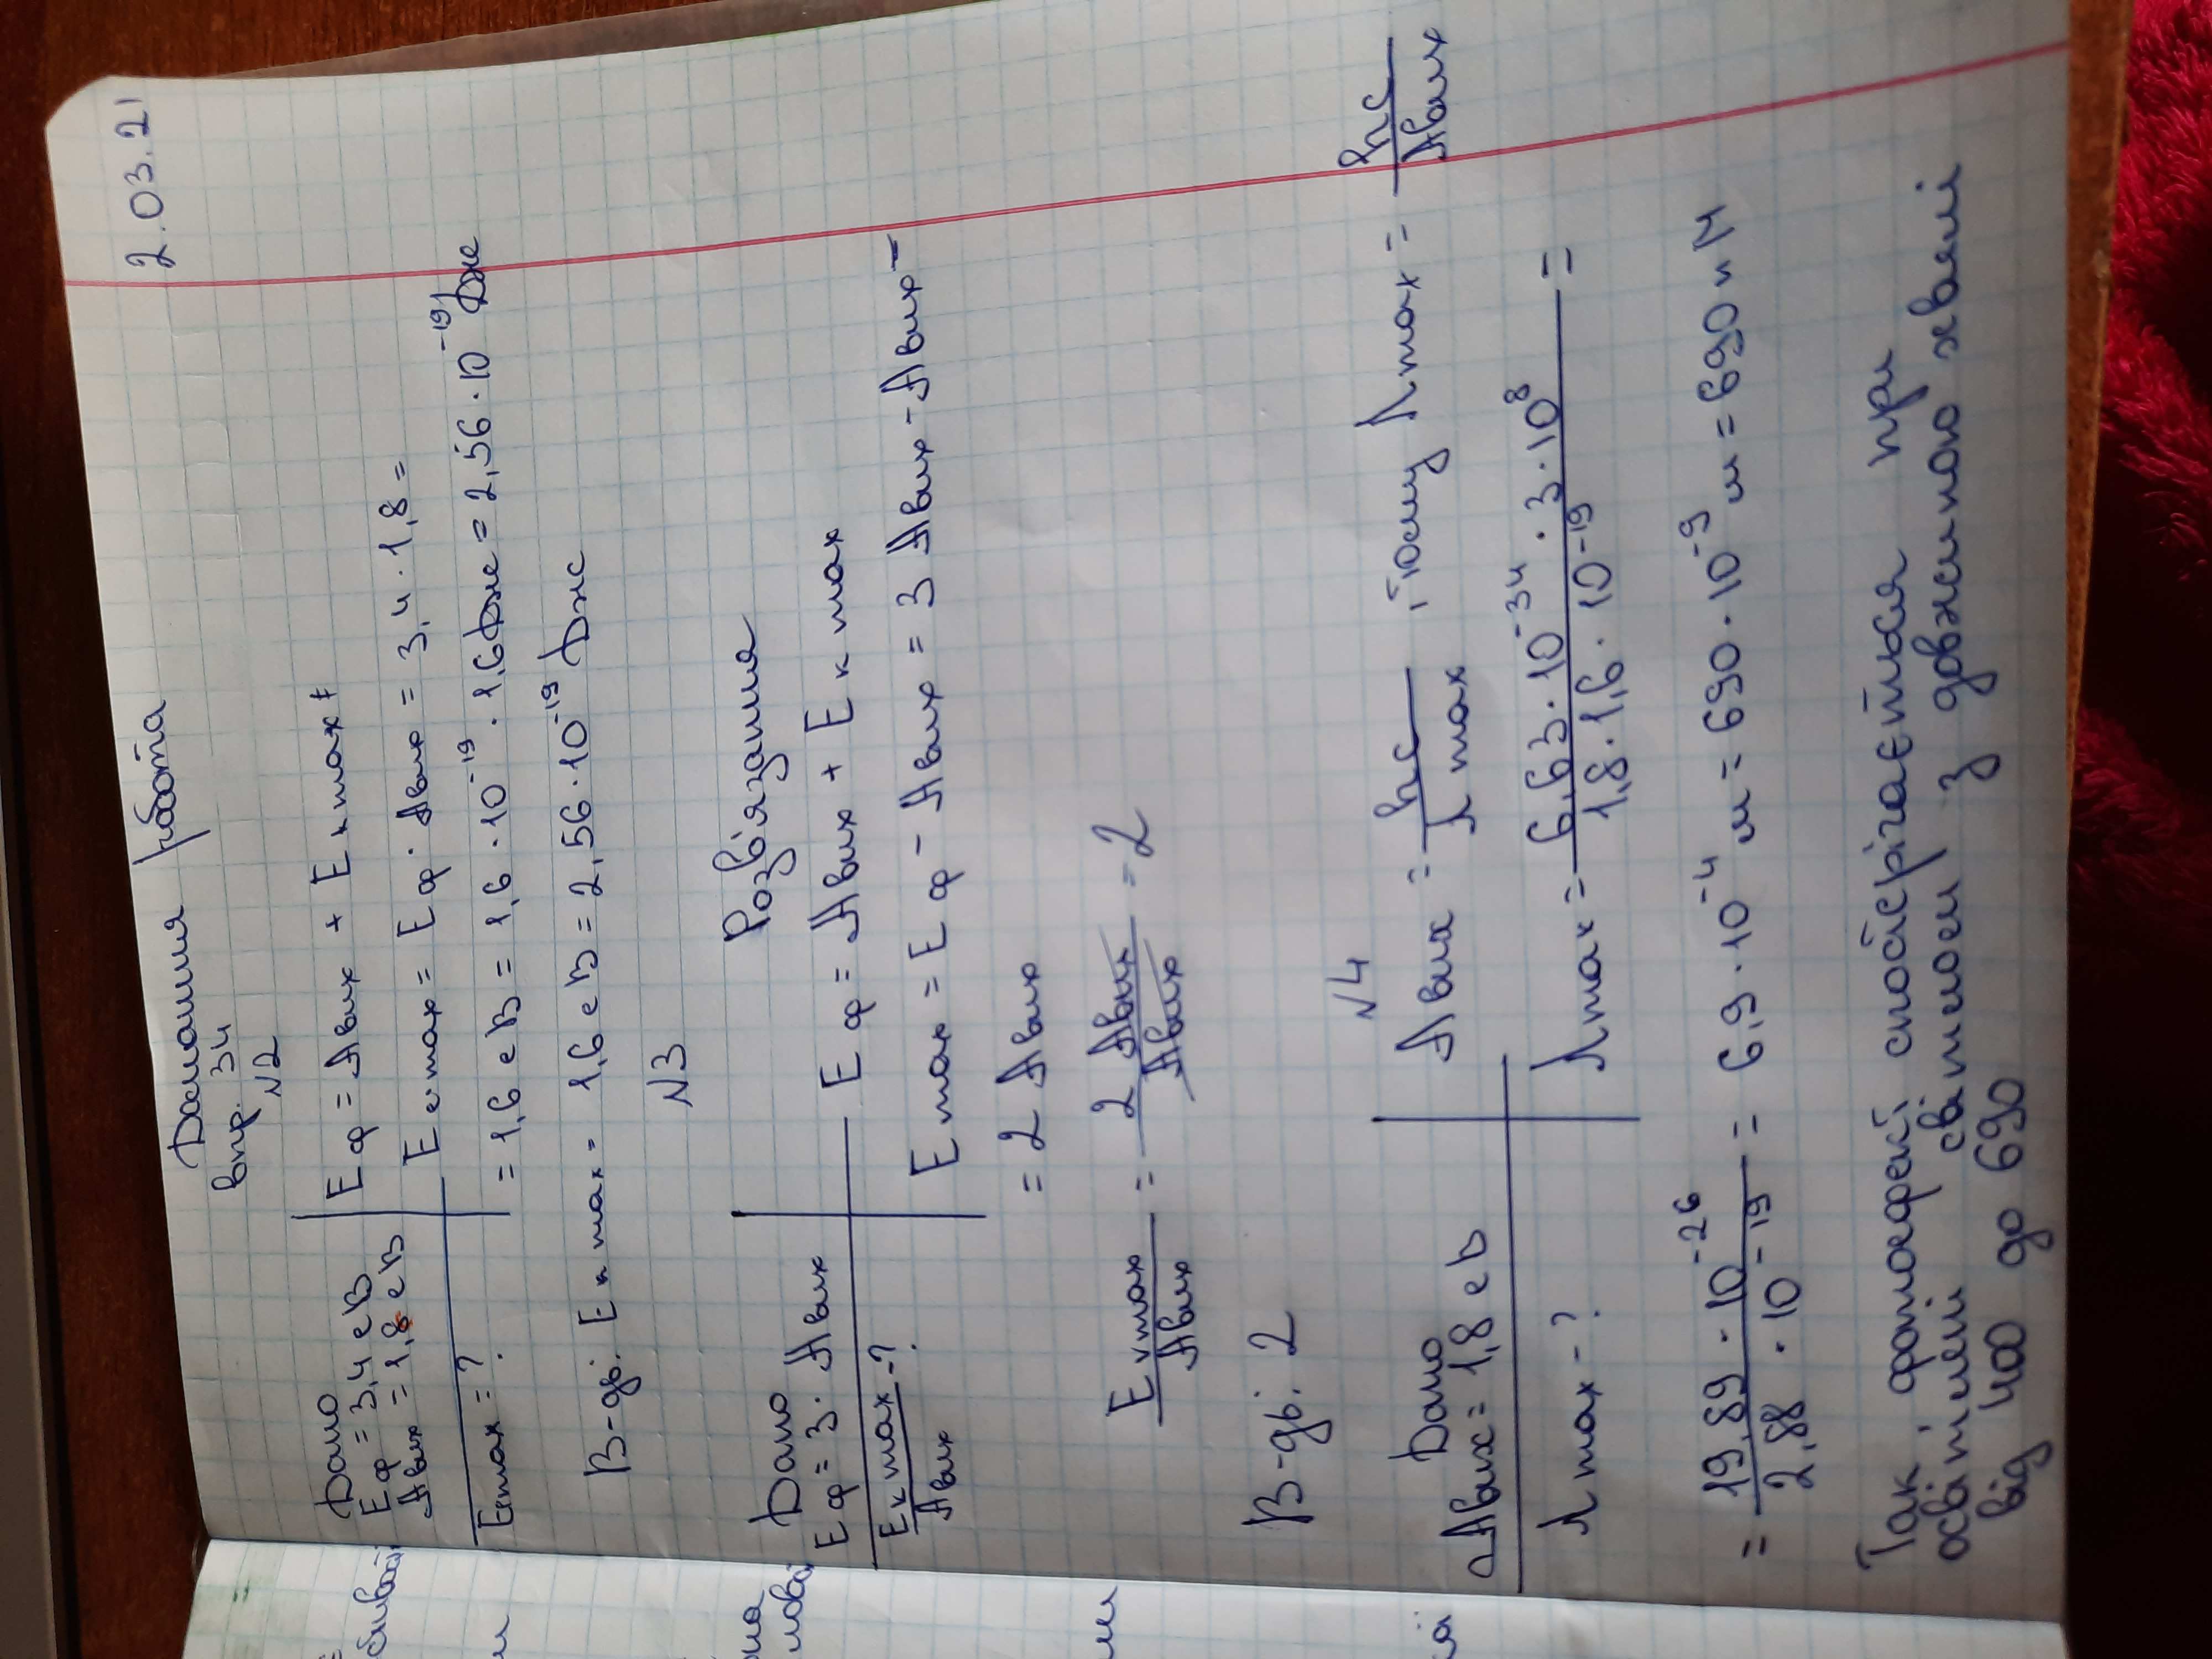 2.03.21
Домашня робота
впр. 34
№2
Дано
Eф = 3,4 еВ
Aвих = 1,8 еВ
Eкmax = ?
Eф = Aвих + Eкmax
Eкmax = Eф · Aвих = 3,4 · 1,8 =
= 1,6 еВ = 1,6 · 10⁻¹⁹ · 1,6 Дж = 2,56 · 10⁻¹⁹ Дж
В-дь: Eк max = 1,6 еВ = 2,56 · 10⁻¹⁹ Дж
№3
Дано
Eф = 3 · Aвих
Eк max / Aвих = ?
Розв'язання
Eф = Aвих + Eк max
Emax = Eф - Aвих = 3 Aвих - Aвих =
= 2 Aвих
Eкmax / Aвих = 2 Aвих / Aвих = 2
В-дь: 2
№4
Дано
Aвих = 1,8 еВ
λmax - ?
Aвих = hc / λmax , тому λmax = hc / Aвих
λmax = 6,63 · 10⁻³⁴ · 3 · 10⁸ / 1,8 · 1,6 · 10⁻¹⁹ =
= 19,89 · 10⁻²⁶ / 2,88 · 10⁻¹⁹ = 6,9 · 10⁻⁴ м = 690 · 10⁻⁹ м = 690 нм
Так, фотоефект спостерігається при
освітлені світлом з довжиною хвилі
від 400 до 690